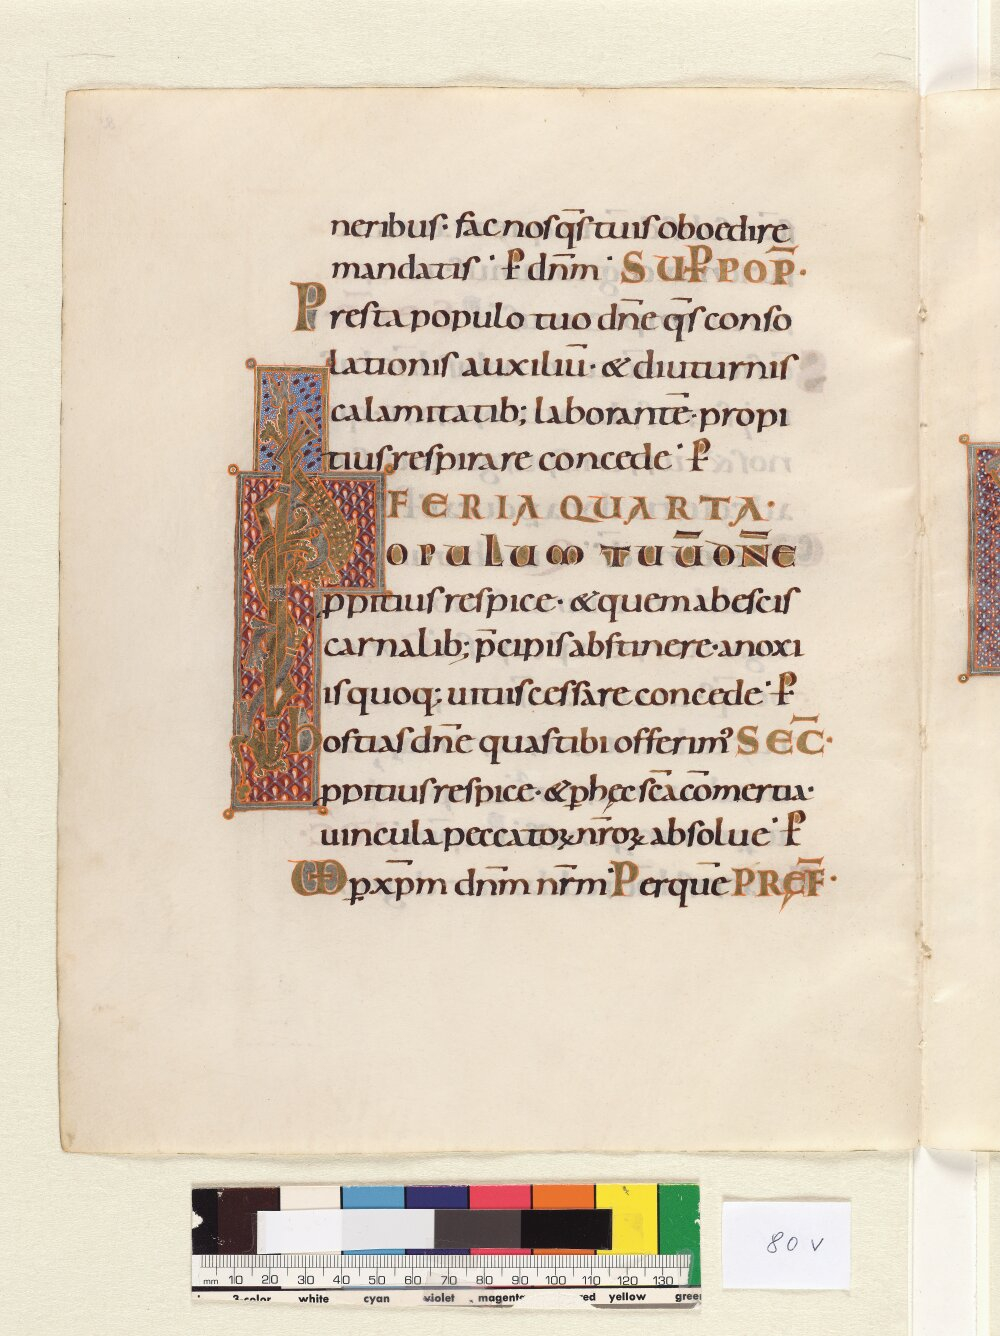 neribus· fac nos q̄s tuis oboedire
mandatis· P̶ dn̄m· SUP̶ POP̄·
Presta populo tuo dn̄e q̄s conso
lationis auxiliū· & diuturnis
calamitatib; laborantē· propi
tius respirare concede· P̶
FERIA QUARTA·
POPULUM TUŪ DN̄E
ꝓpitius respice· & quem ab escis
carnalib; p̄cipis abstinere· a noxi
is quoq; uitiis cessare concede· P̶
Hostias dn̄e quas tibi offerim᾽ SEC̄·
ꝓpitius respice· & p hęc sc̄a cōmertia·
uincula peccatoꝝ nr̄oꝝ absolue· P̶
UD ꝑ xp̄m dn̄m nr̄m· Per quē PREF̄·
80 v
mm 10 20 30 40 50 60 70 80 90 100 110 120 130
3-color white cyan violet magenta red yellow green